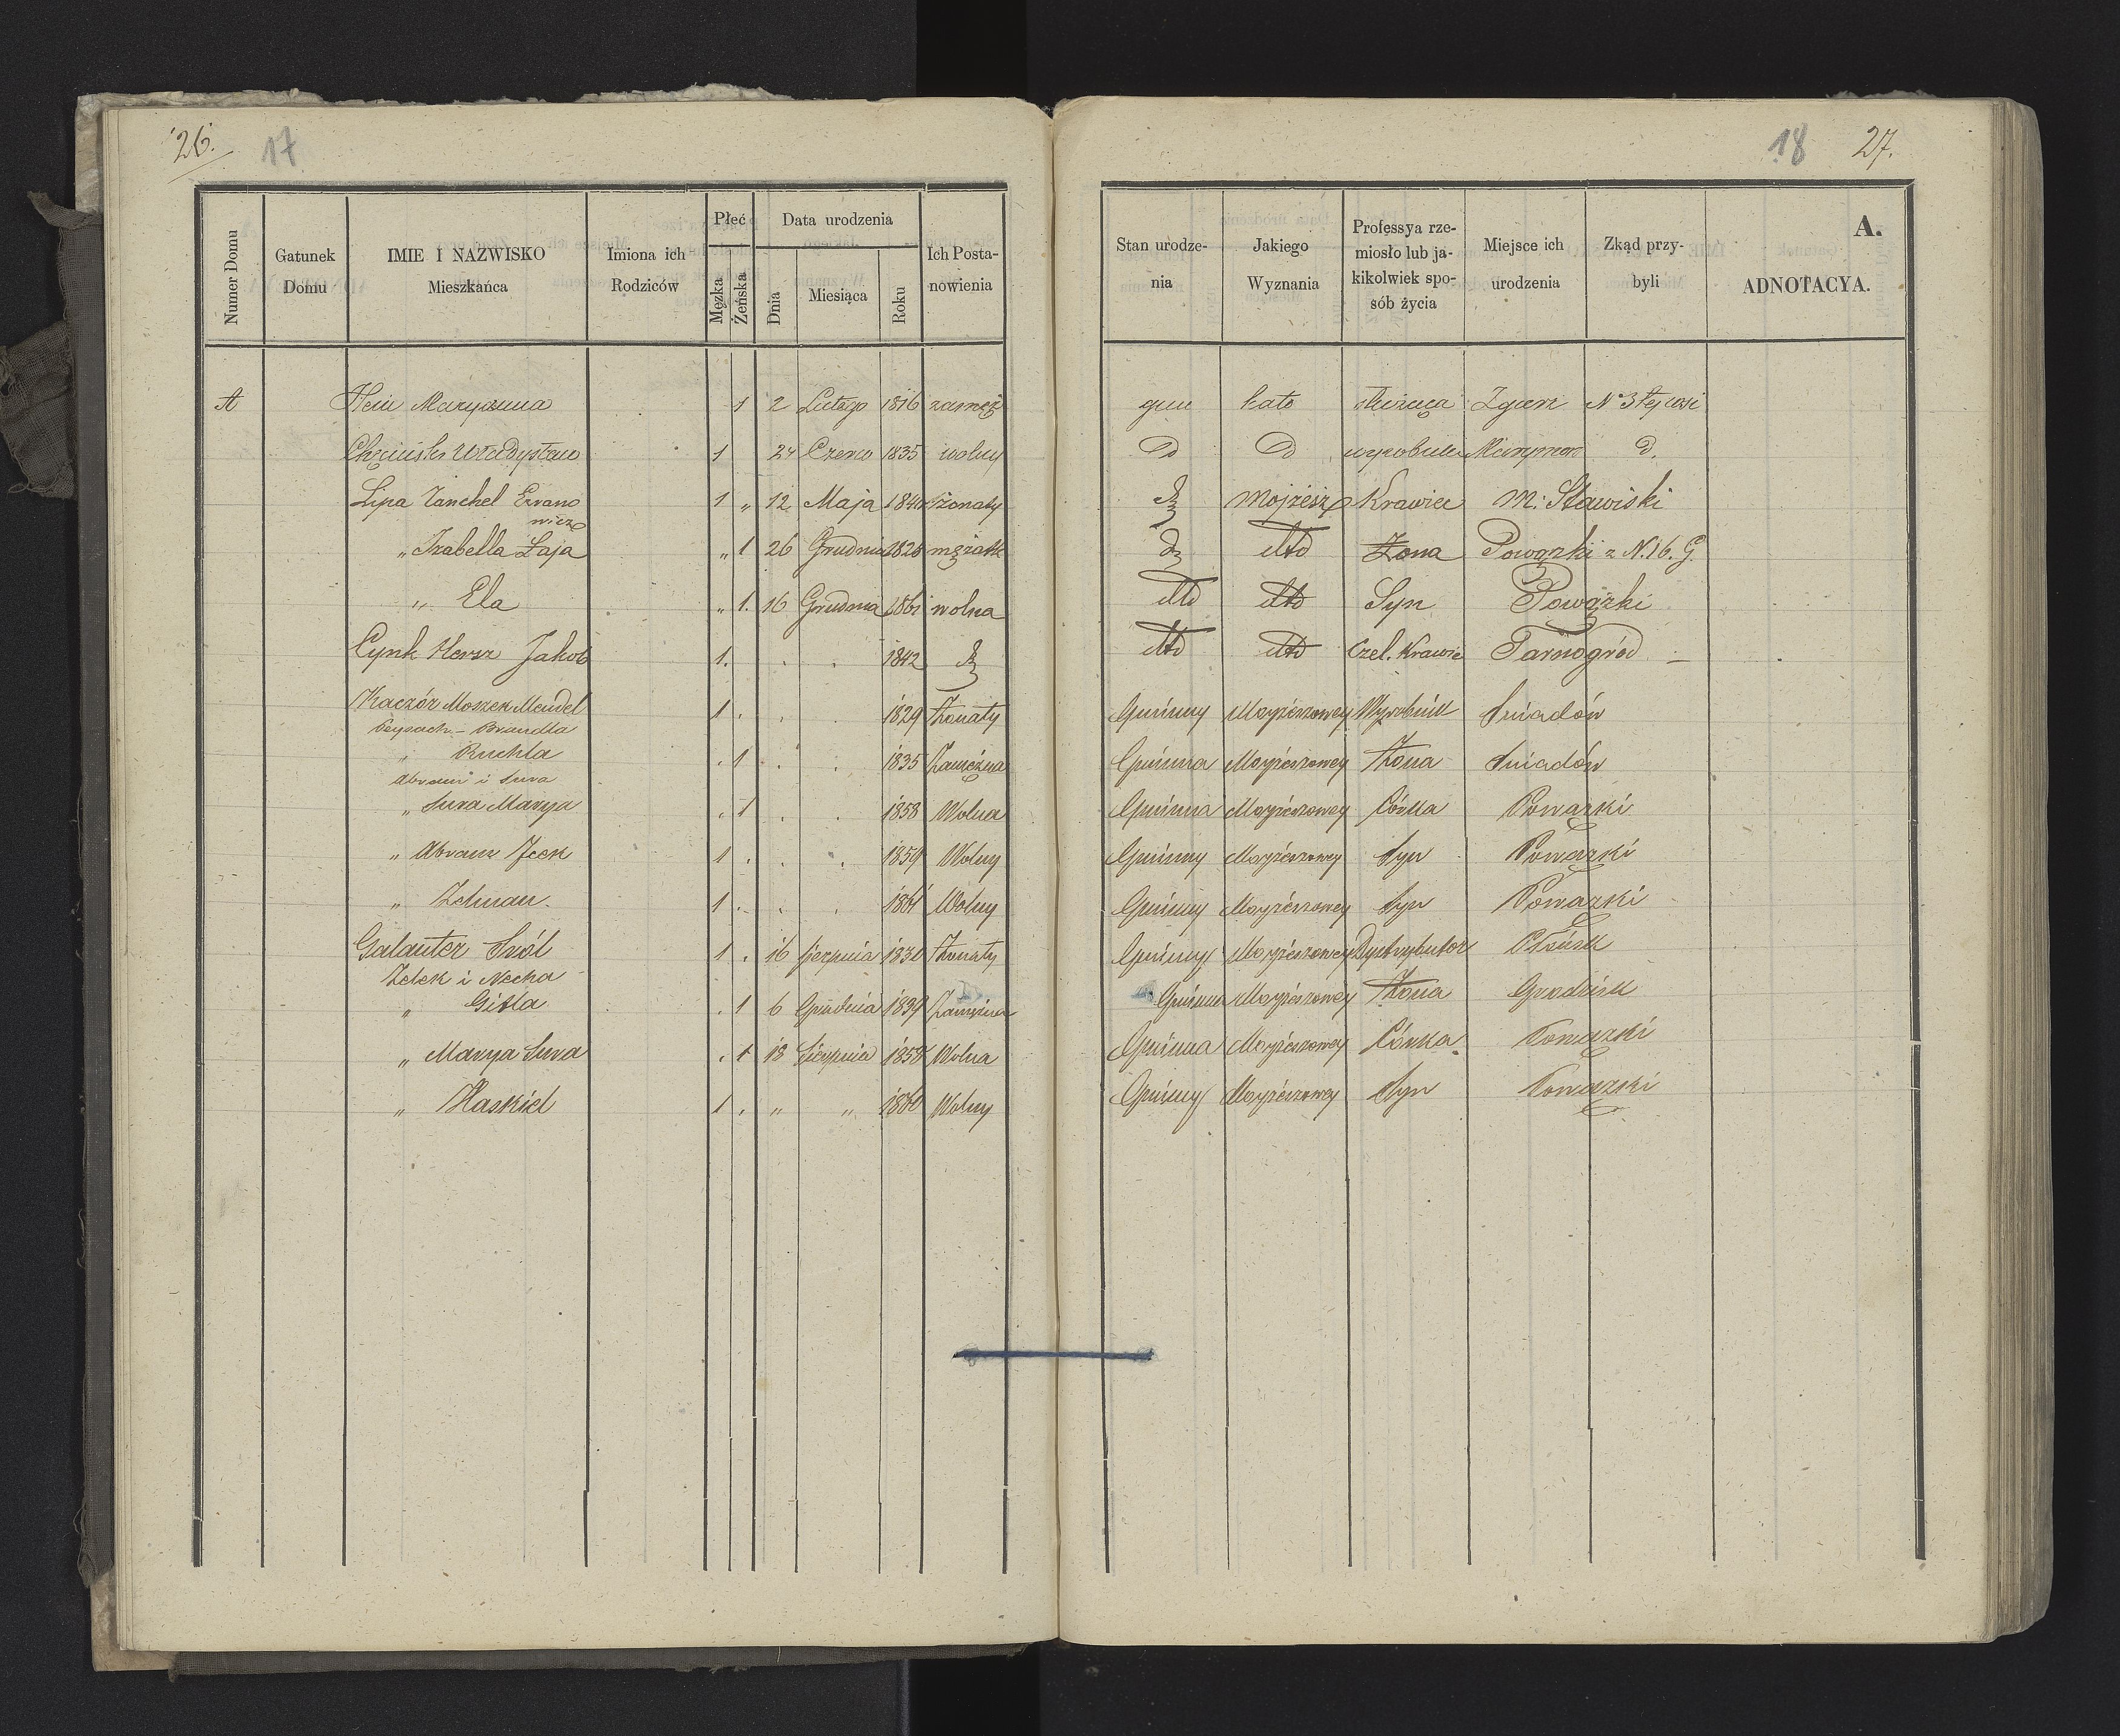 26. 17
18 27.
A.
Numer Domu Gatunek Domu IMIE I NAZWISKO Mieszkańca Imiona ich Rodziców Płeć Męzka Żeńska Data urodzenia Dnia Miesiąca Roku Ich Postanowienia
Stan urodzenia Jakiego Wyznania Professya rzemiosło lub jakikolwiek sposób życia Miejsce ich urodzenia Zkąd przybyli ADNOTACYA.
A Maryanna 1 2 Lutego 1816 zamęż kato służąca Zgierz
Władysław 1 24 Czerw 1835 wolny D D D.
Lipa Tanchel 1 " 12 Maja żonaty Mojżesz Krawiec M. Stawiski
" Izabella Łaja " 1 26 Grudnia mężatk dtto Żona Powązki z N. 16. G.
" Ela " 1. 16 Grudnia 1861 wolna dtto dtto Syn Powązki
Cynk Hersz Jakob 1. . . 1842 dtto dtto Czel. Krawie Tarnogród —
Kaczór Moszek Mendel 1 . . . 1829 Żonaty Gminny Mojżeszowey Wyrobnik Sniadów
Peysach - Brandla
" Ruchla . 1 . . 1835 Zamężna Gminna Mojżeszowey Żona Sniadów
Abram i Sura
" Sura Marya . 1 . . 1858 Wolna Gminna Mojżeszowey Córka Powązki
" Abram Icek 1 . . . 1859 Wolny Gminny Mojżeszowey Syn Powązki
" Zelman 1 . . . 1861 Wolny Gminny Mojżeszowey Syn Powązki
Galanter Sról 1 . 16 Sierpnia 1830 Żonaty Gminny Mojżeszowey Dystrybutor Płońsk
Zelek i Necha
" Gitla . 1 6 Grudnia 1839 Zamężna Gminna Mojżeszowey Żona Grodzisk
" Marya Sura . 1 18 Sierpnia 1858 Wolna Gminna Mojżeszowey Córka Powązki
" Haskiel 1 . " " 1860 Wolny Gminny Mojżeszowey Syn Powązki